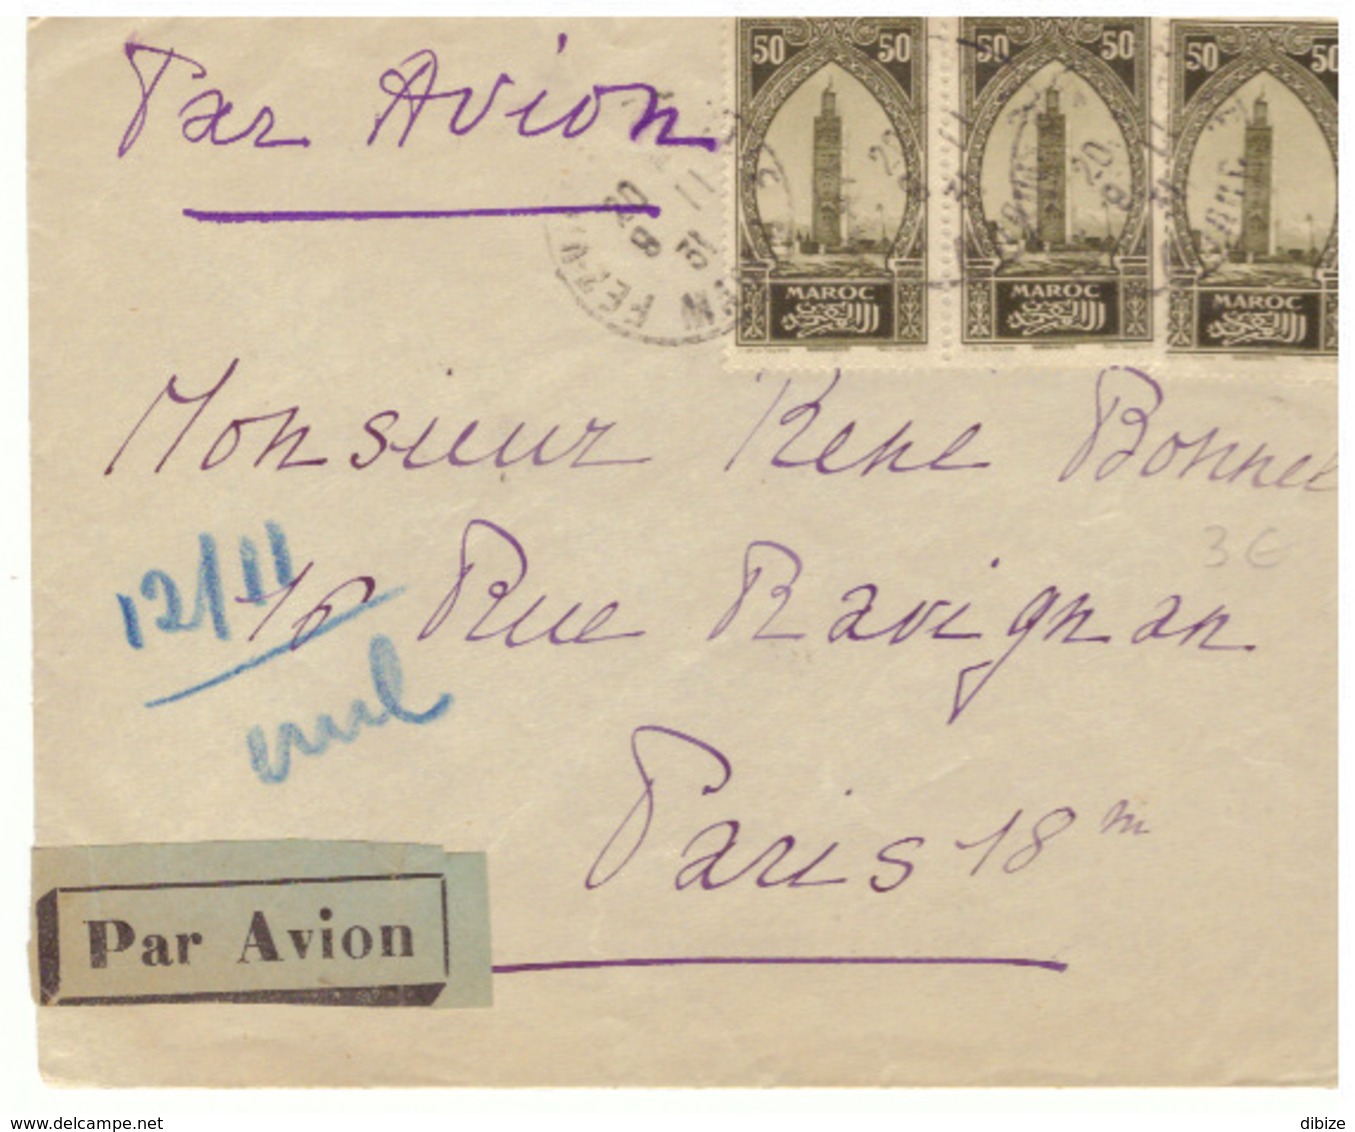 Par Avion
50 50 50 50 50 50
MAROC MAROC MAROC
20 11 31
8
FEZ
Monsieur René Bonnet
12/11 16 Rue Ravignan
3€
Paris 18 m
Par Avion
www.delcampe.net
dibize